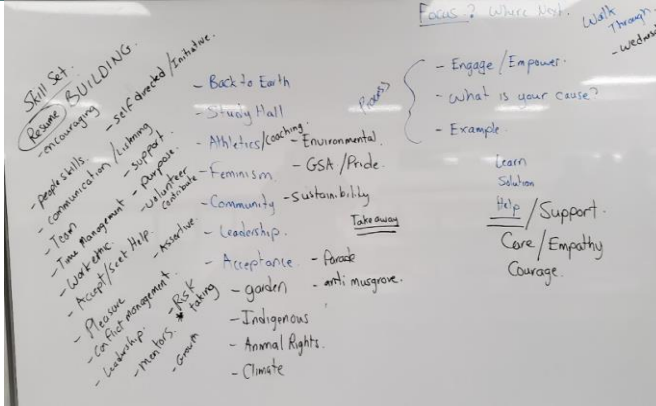 Skill Set.
Resume BUILDING.
- encouraging
- self directed/Initiative.
- people skills.
- communication/listening
- support.
- Team
- purpose.
- Time Management
- volunteer
contribute
- Work ethic.
- Accept/seek Help.
- Assertive.
- Pleasure
- Conflict management.
- Risk
taking
- Leadership.
- Mentors.
- Growth
- Back to Earth
- Study Hall
- Athletics/Coaching.
- Feminism.
- Community
- Leadership.
- Acceptance.
- garden
- Indigenous
- Animal Rights.
- Climate
- Environmental.
- GSA/Pride.
- Sustainability
Takeaway
- Parade
- anti musgrove.
Process
Focus? Where Next.
Walk
Through.
- Engage/Empower.
- What is your cause?
- Example.
Learn
Solution
Help/Support.
Care/Empathy
Courage.